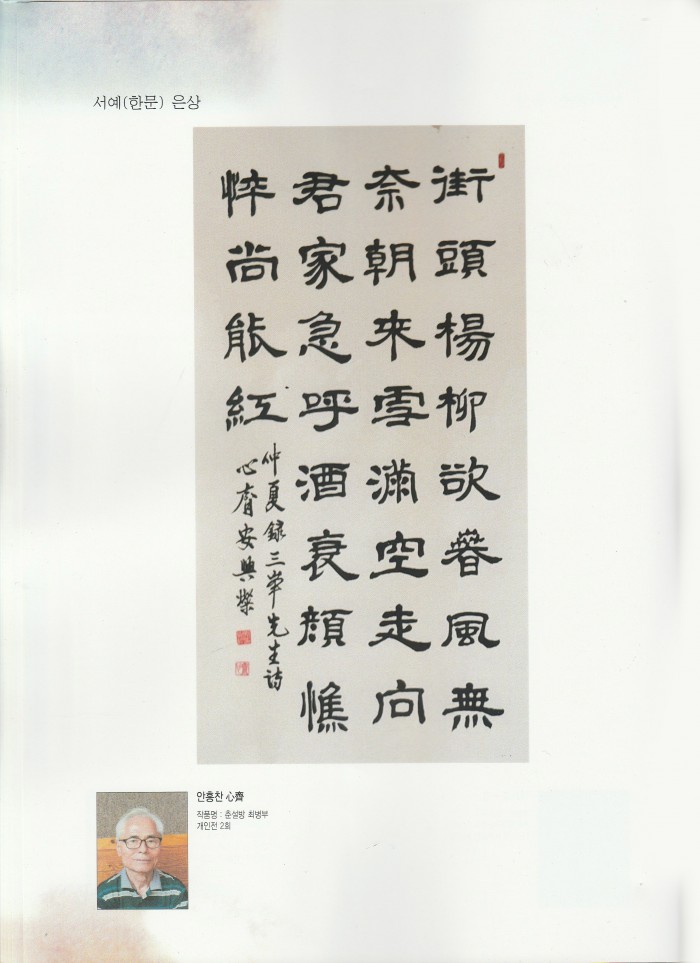 서예(한문) 은상
街頭楊柳欲春風無
奈朝來雪滿空走向
君家急呼酒衰顔憔
悴尚能紅
仲夏録三峯先生詩
心齊安興燦
안홍찬 心齊
작품명 : 춘설방 최병부
개인전 2회